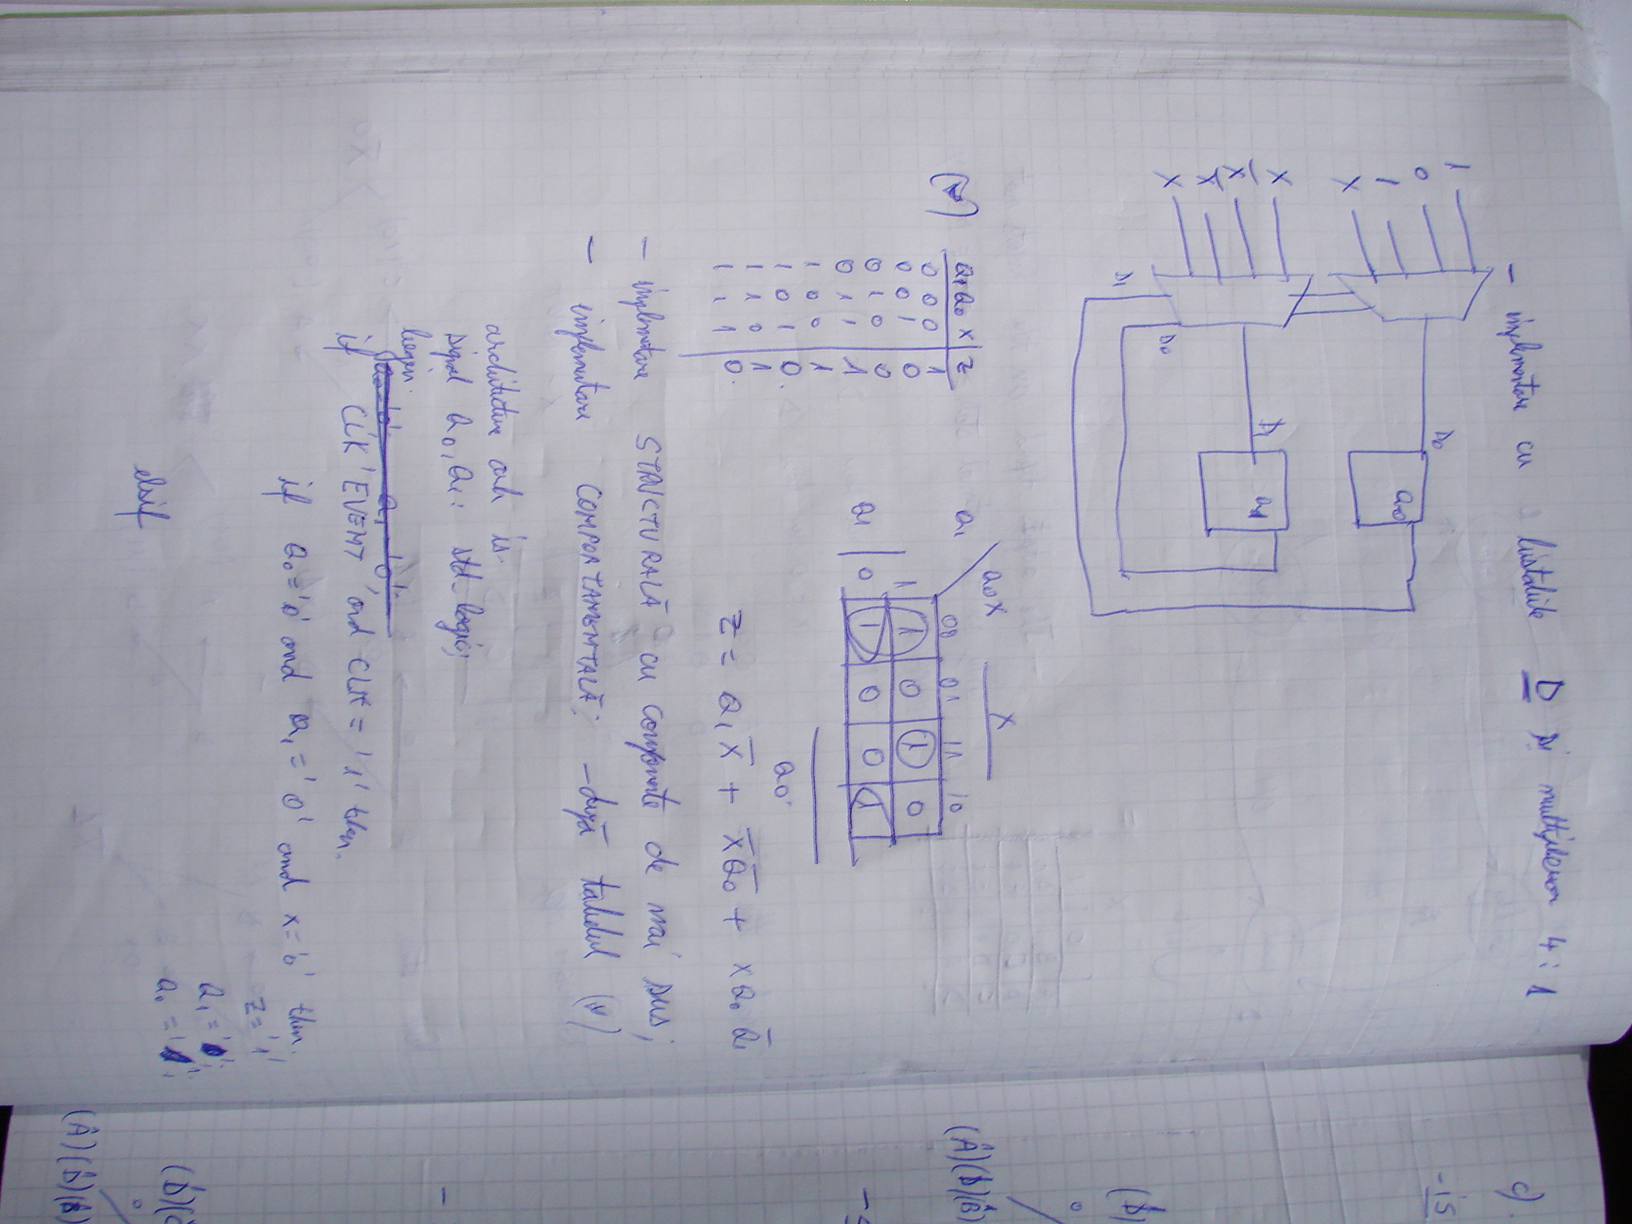 - implementare cu bistabile D și multiplexor 4:1
1
0
1
X
D0
a0
X
X̅
X̅
X
D1
a1
D1
D0
(*)
a1 a0 x | z
0 0 0 | 1
0 0 1 | 0
0 1 0 | 0
0 1 1 | 1
1 0 0 | 1
1 0 1 | 0
1 1 0 | 1
1 1 1 | 0
X
a1 a0x 00 01 11 10
1 1 0 1 0
a1 0 1 0 0 1
a0
z = a1x̅ + x̅a̅0 + xa0a̅1
- implementare STRUCTURALĂ cu componente de mai sus;
- implementare COMPORTAMENTALĂ; - după tabelul (*)
architecture arh is
signal a0, a1: std_logic;
begin
if CLK'EVENT and CLK = '1' then.
if a0='0' and a1='0' and x='0' then.
z='1'
a1=
a0=
elsif
c).
-is
(b)
(A)(b)(B)
(A)(b)(B)